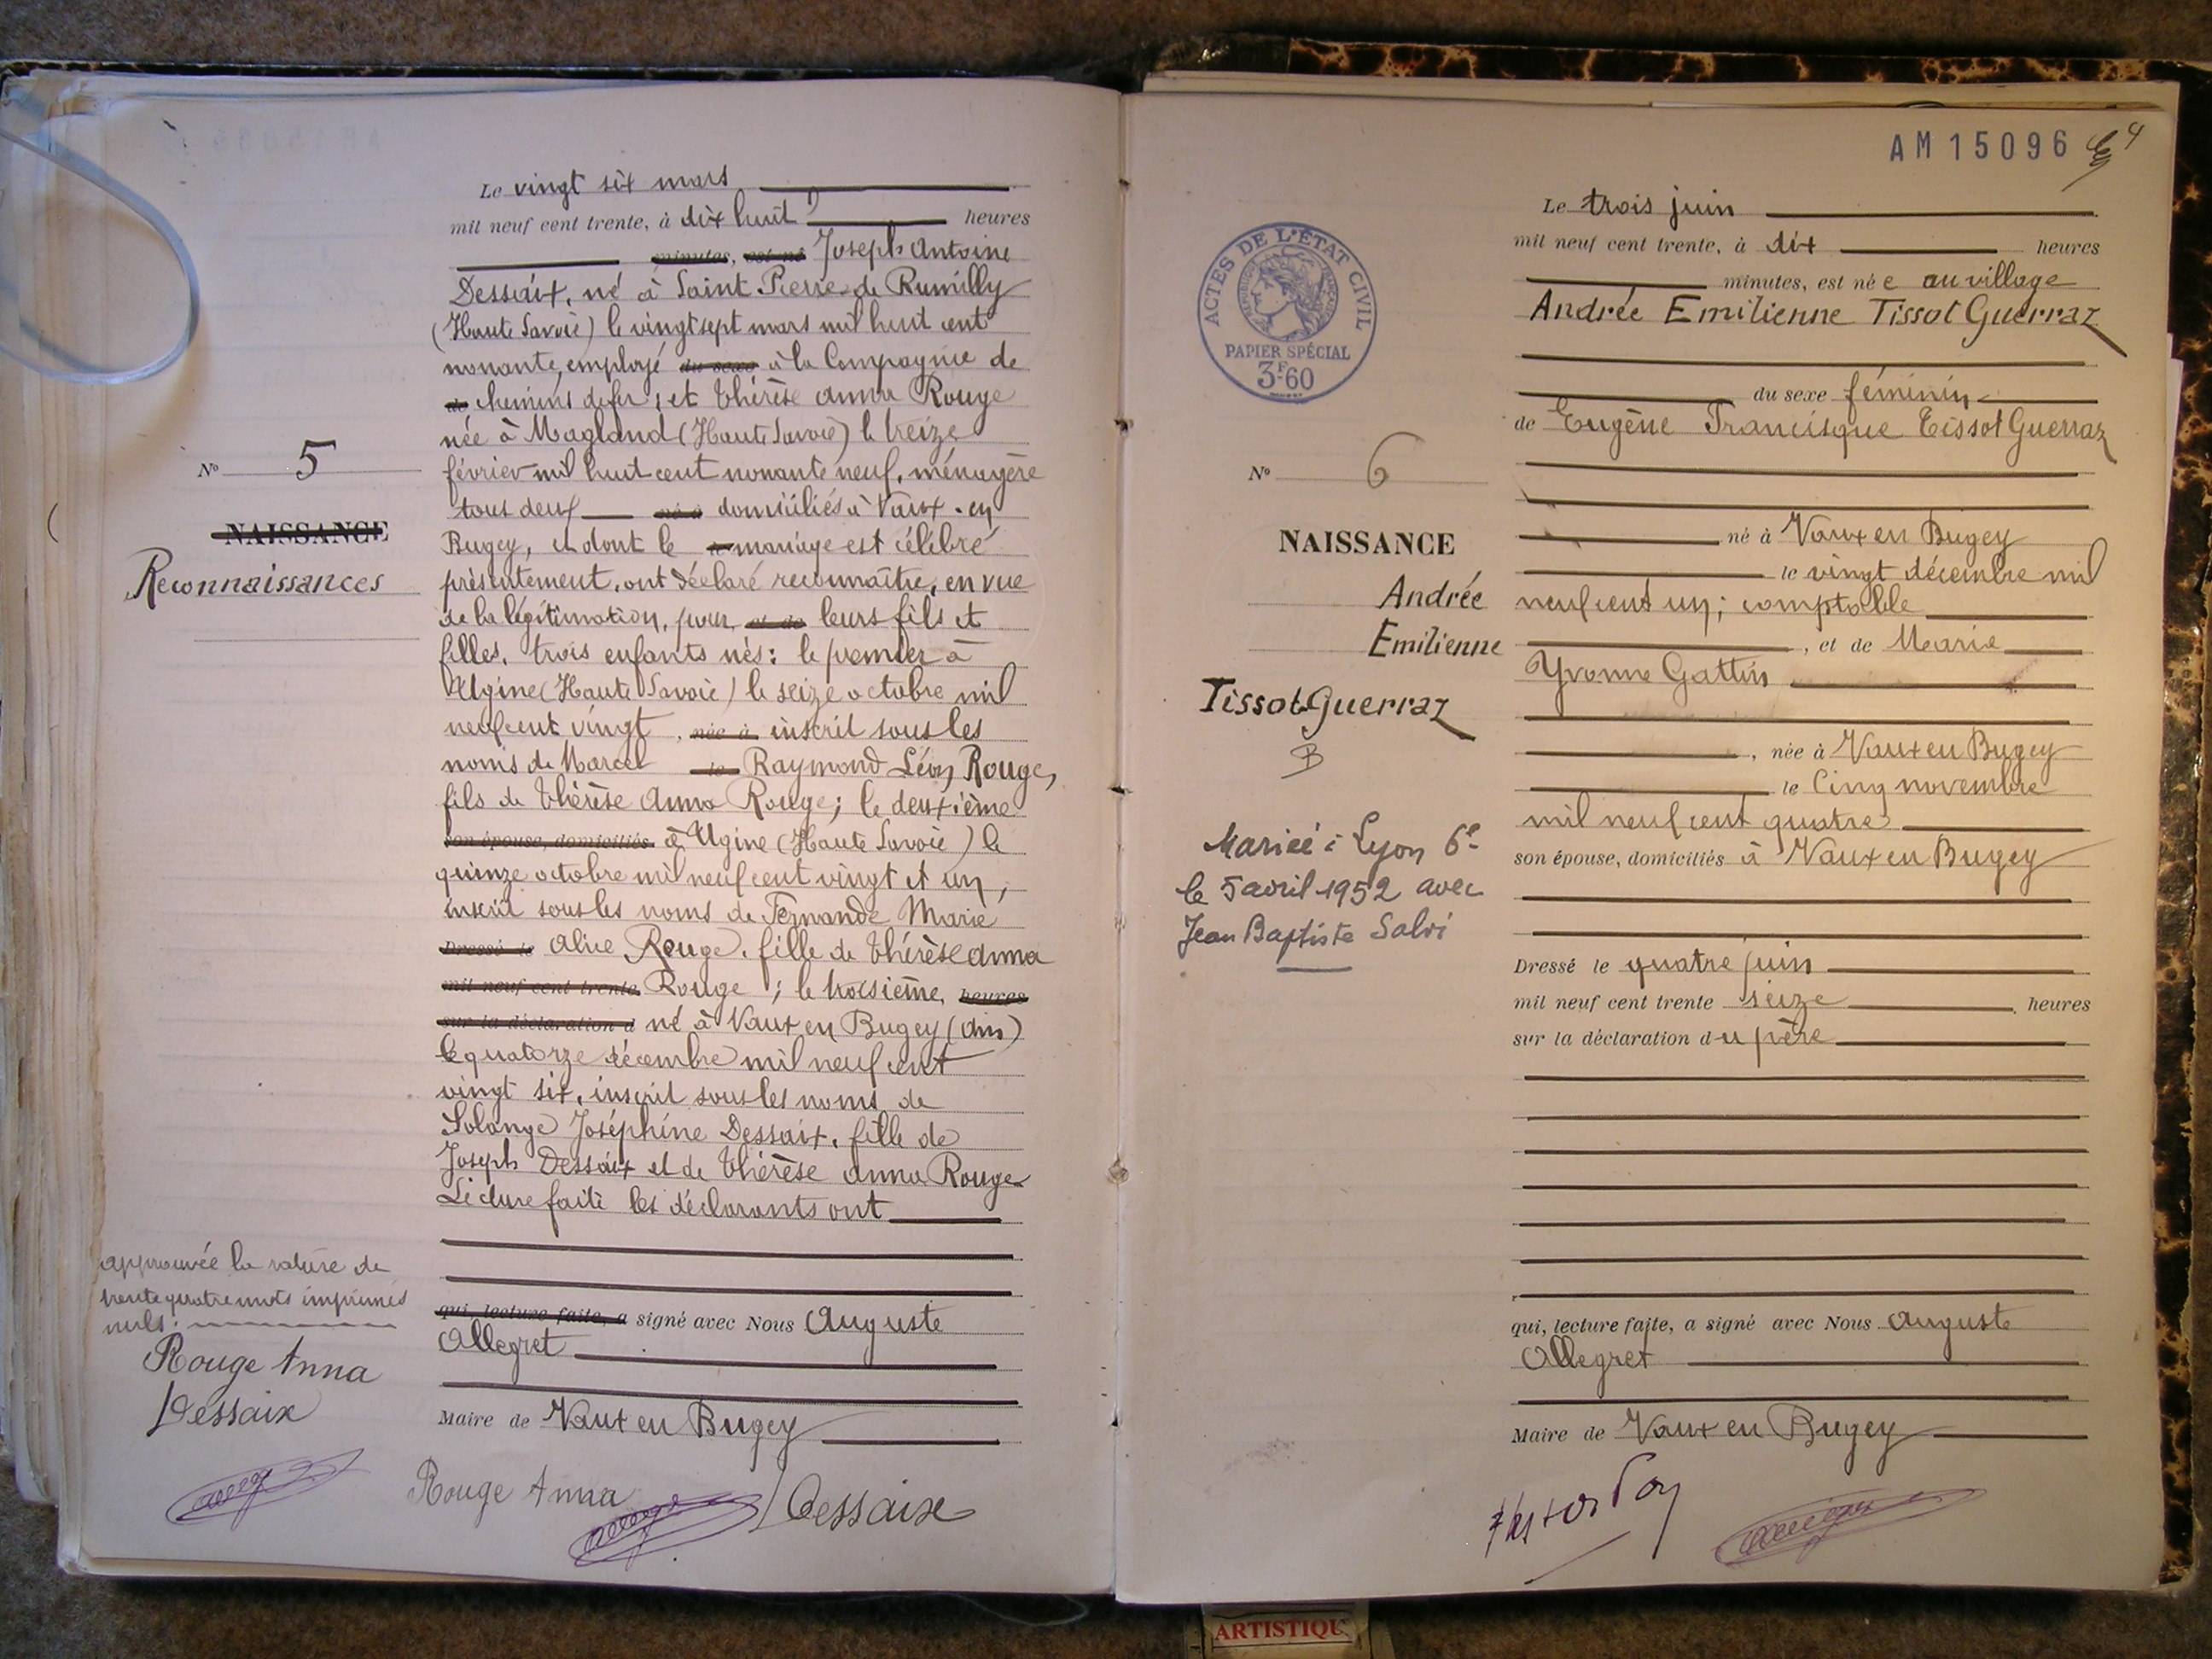 Le vingt six mars
mil neuf cent trente, à dix huit heures
minutes, est né Joseph Antoine
Dessaix, né à Saint Pierre de Rumilly
(Haute Savoie) le vingt sept mars mil huit cent
nonante, employé du sexe à la Compagnie de
de chemins de fer ; et Thérèse Anna Rouge
née à Magland (Haute Savoie) le treize
février mil huit cent nonante neuf, ménagère
tous deux né à domiciliés à Vaux-en
Bugey, et dont le le mariage est célébré
présentement, ont déclaré reconnaître, en vue
de la légitimation, pour et de leurs fils et
filles, trois enfants nés : le premier à
Ugine (Haute Savoie) le seize octobre mil
neuf cent vingt, née à inscrit sous les
noms de Marcel le Raymond Léon Rouge,
fils de Thérèse Anna Rouge ; le deuxième
son épouse, domiciliés à Ugine (Haute Savoie) le
quinze octobre mil neuf cent vingt et un,
inscrit sous les noms de Fernande Marie
Dressé le Alice Rouge, fille de Thérèse Anna
mil neuf cent trente Rouge ; le troisième, heures
sur la déclaration d né à Vaux en Bugey (Ain)
le quatorze décembre mil neuf cent
vingt six, inscrit sous les noms de
Solange Joséphine Dessaix, fille de
Joseph Dessaix et de Thérèse Anna Rouge
Lecture faite les déclarants ont
qui, lecture faite, a signé avec Nous Auguste
Allegret
Maire de Vaux en Bugey
Rouge Anna Dessaix
N° 5
NAISSANCE
Reconnaissances
approuvée la rature de
trente quatre mots imprimés
nuls.
Rouge Anna
Dessaix
AM 15096
4
ACTES DE L'ÉTAT CIVIL
PAPIER SPÉCIAL
3F60
N° 6
NAISSANCE
Andrée
Emilienne
Tissot Guerraz
Mariée à Lyon 6e
le 5 avril 1952 avec
Jean Baptiste Salvi
Le trois juin
mil neuf cent trente, à dix heures
minutes, est née au village
Andrée Emilienne Tissot Guerraz
du sexe féminin
de Eugène Francisque Tissot Guerraz
né à Vaux en Bugey
le vingt décembre mil
neuf cent un ; comptable
, et de Marie
Yvonne Gattin
, née à Vaux en Bugey
le Cinq novembre
mil neuf cent quatre
son épouse, domiciliés à Vaux en Bugey
Dressé le quatre juin
mil neuf cent trente seize heures
sur la déclaration du père
qui, lecture faite, a signé avec Nous Auguste
Allegret
Maire de Vaux en Bugey
ARTISTIQU